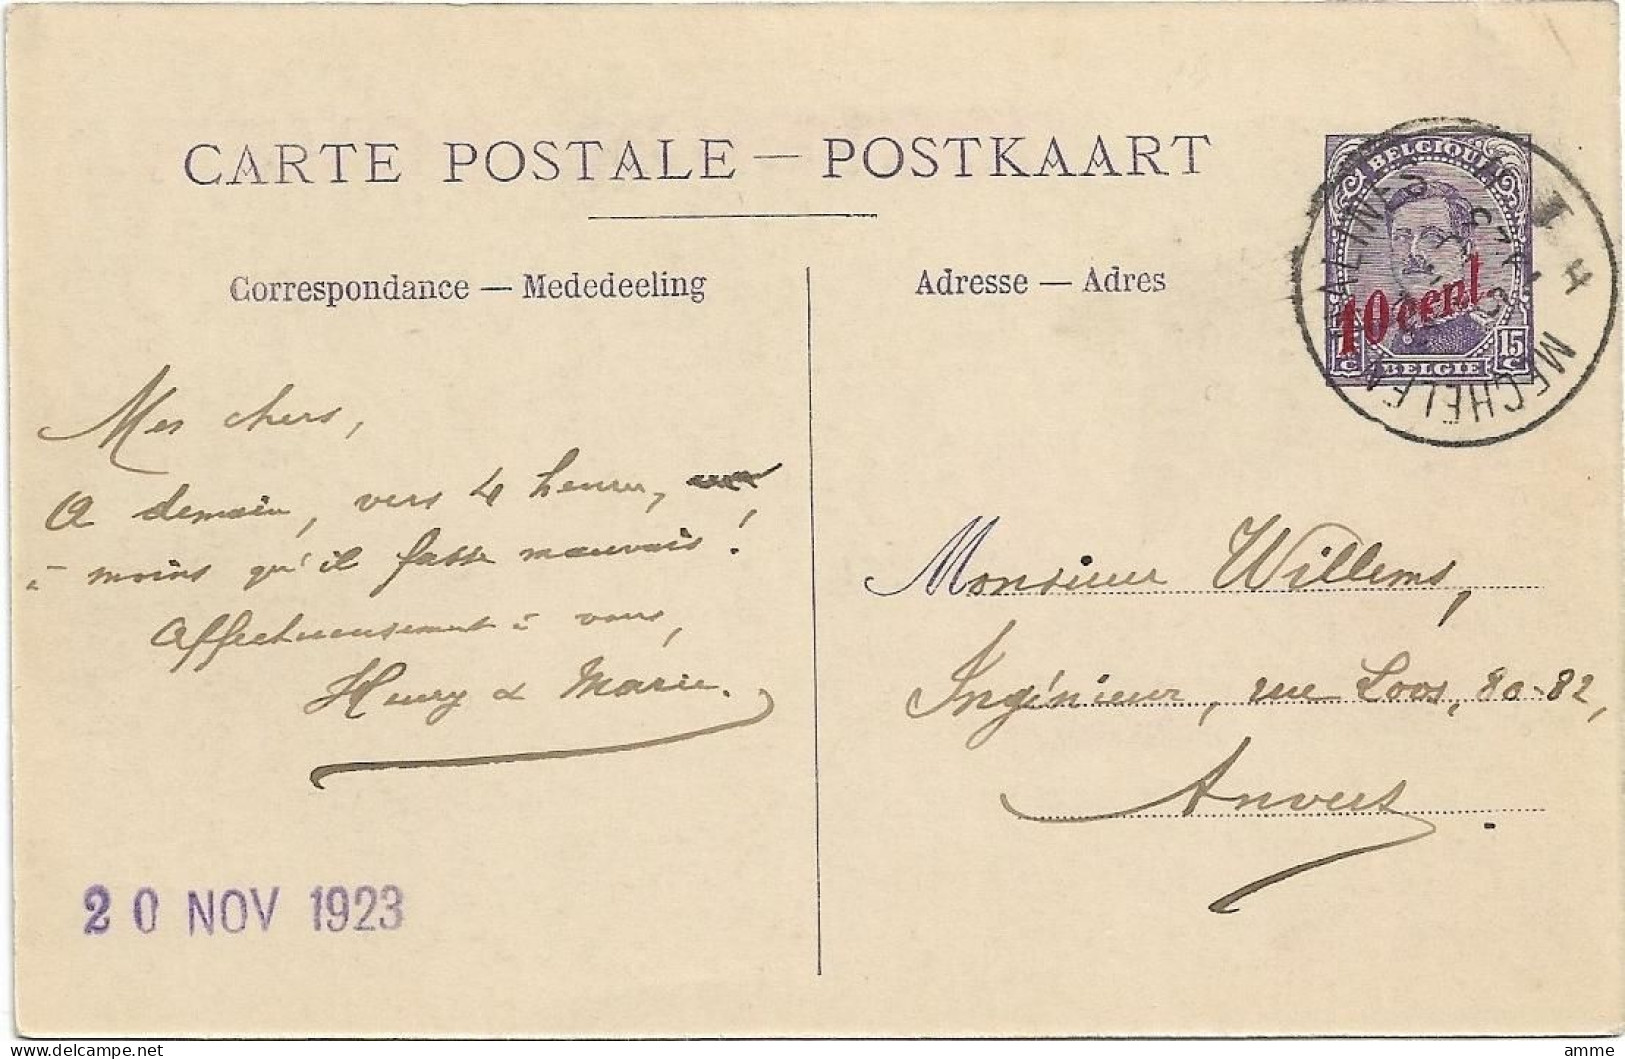 CARTE POSTALE — POSTKAART
Correspondance — Mededeeling
Adresse — Adres
BELGIQUE
10 cent.
15 C
BELGIE
MECHELEN
Mes chers,
A demain, vers 4 heures,
à moins qu'il fasse mauvais!
Affectueusement à vous,
Henry & Marie.
Monsieur Willems,
Ingénieur, rue Loos, 80-82,
Anvers.
20 NOV 1923
delcampe.net
amme